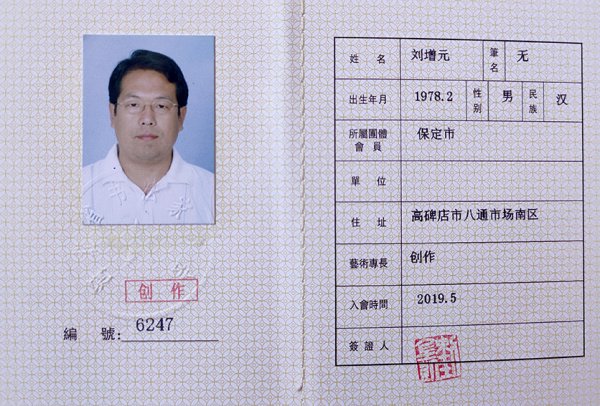 创作
編 號:6247
姓 名 刘增元 筆名 无
出生年月 1978.2 性别 男 民族 汉
所屬團體會員 保定市
單 位
住 址 高碑店市八通市场南区
藝術專長 创作
入會時間 2019.5
簽證人